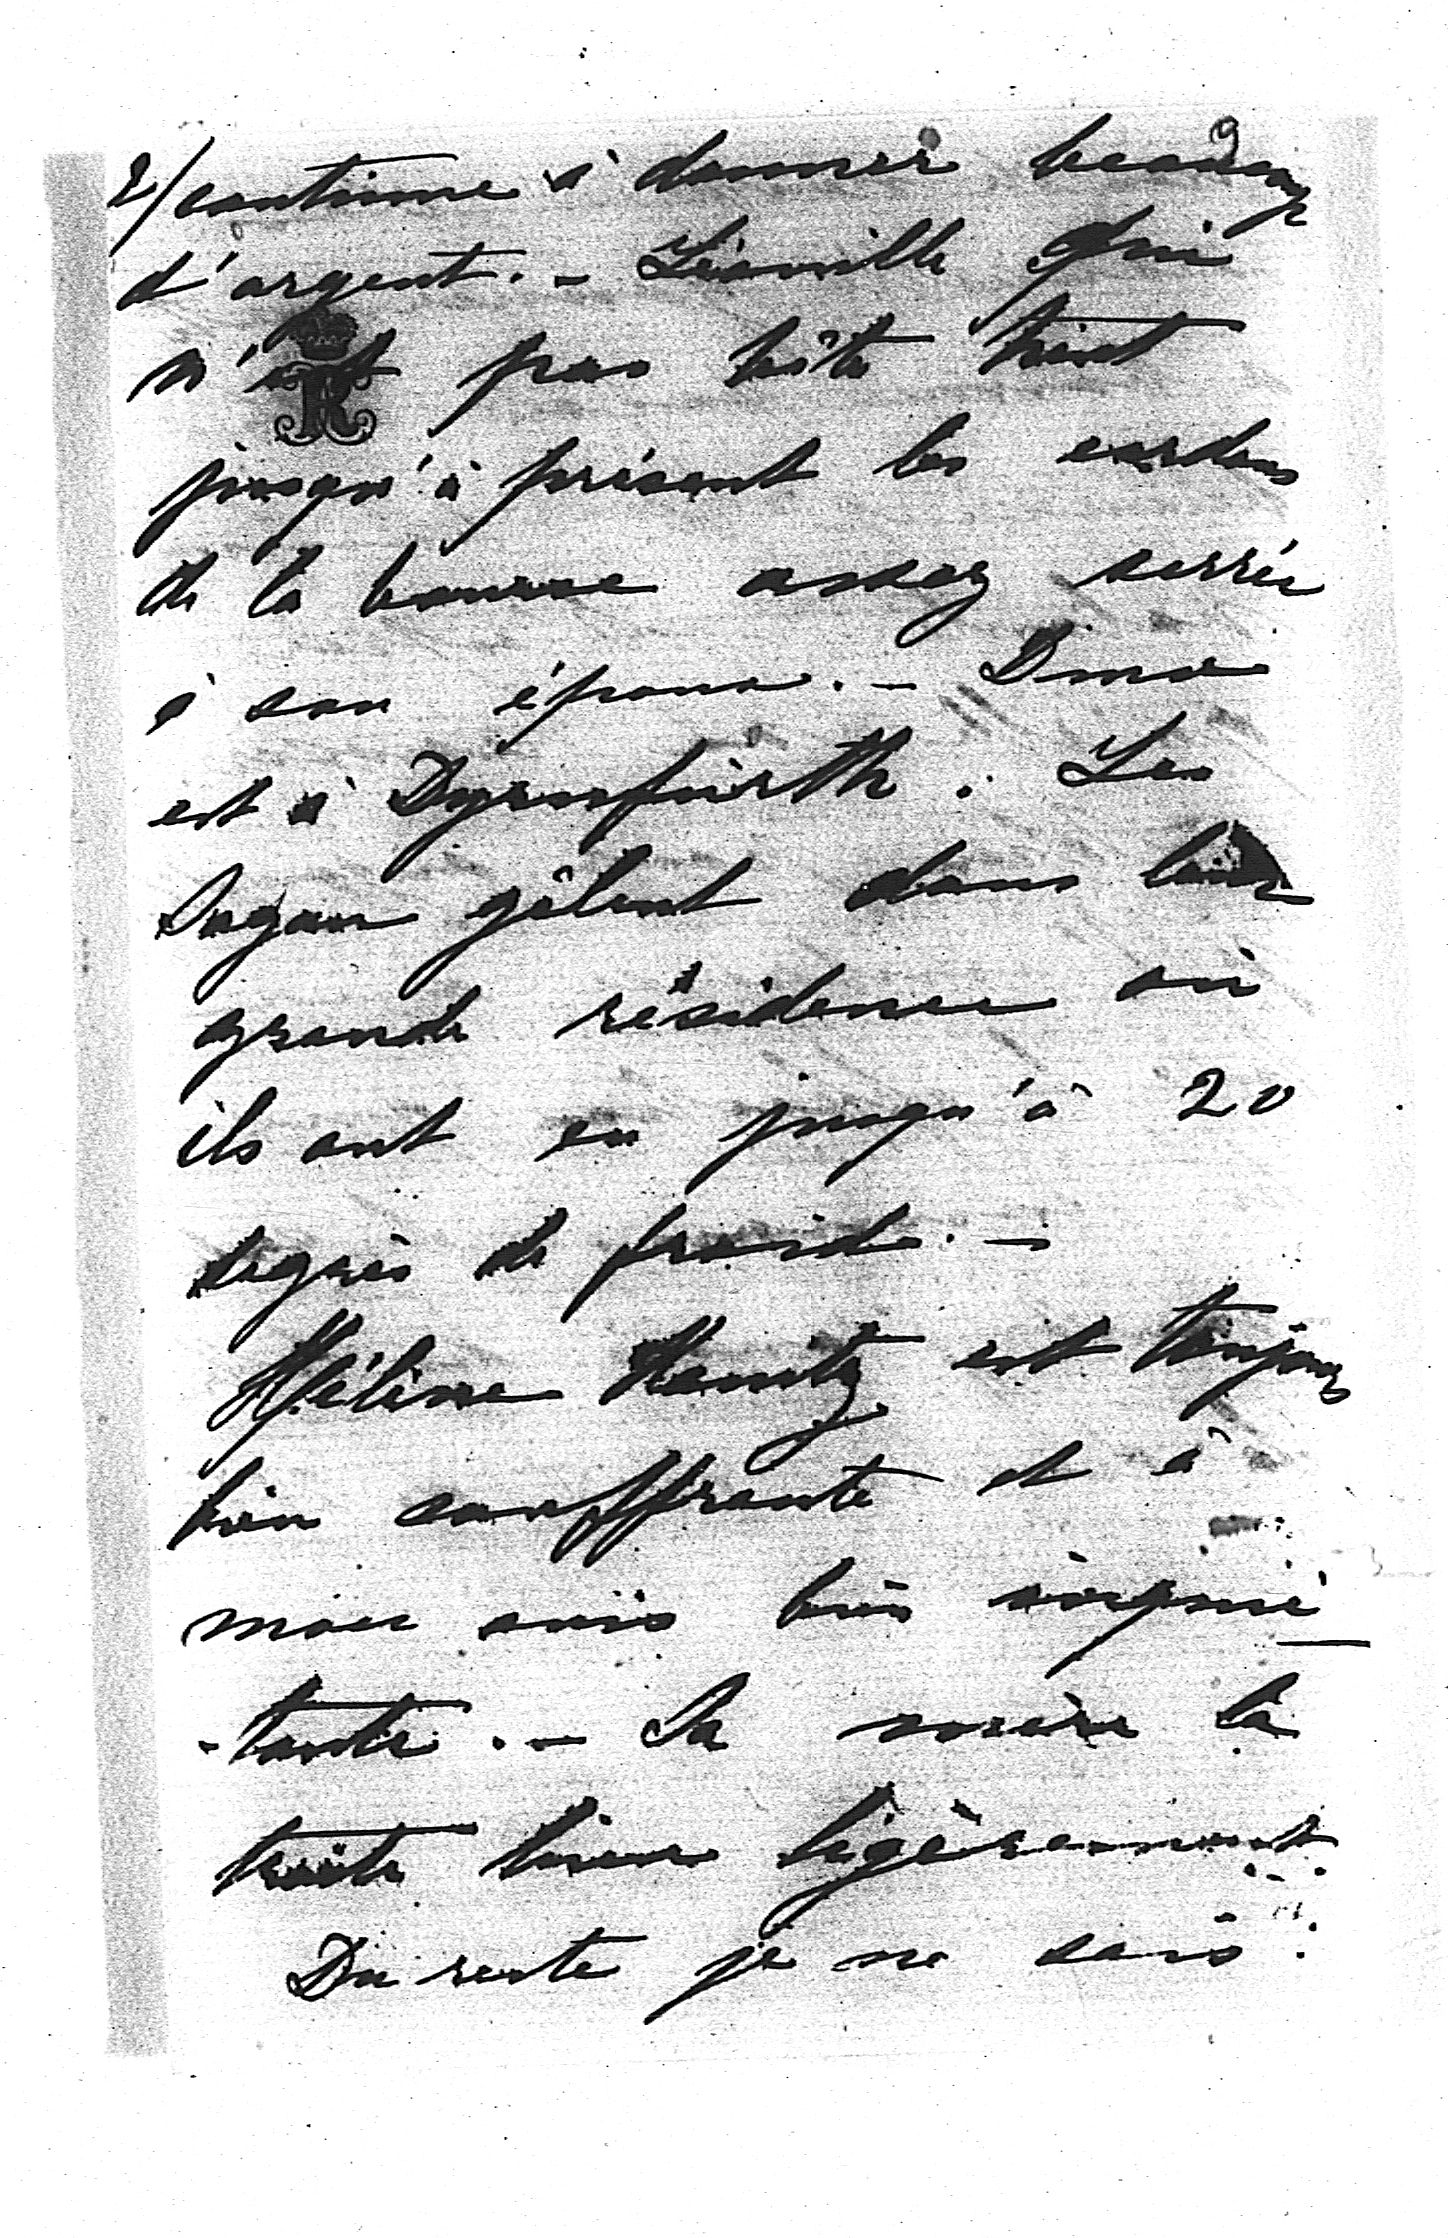 2/ continue à donner beaucoup
d'argent. - qui
n'est pas bête tient
jusqu'à présent les cordons
de la bourse assez serrés
à son époux. - Dino
est à Dyrnfürth. Les
Sagan gèlent dans leur
grande résidence où
ils ont eu jusqu'à 20
degrés de froid. -
Hélène est toujours
bien souffrante et à
mon avis bien inquié
-tante. - Sa mère la
traite bien légèrement
Du reste je ne sais